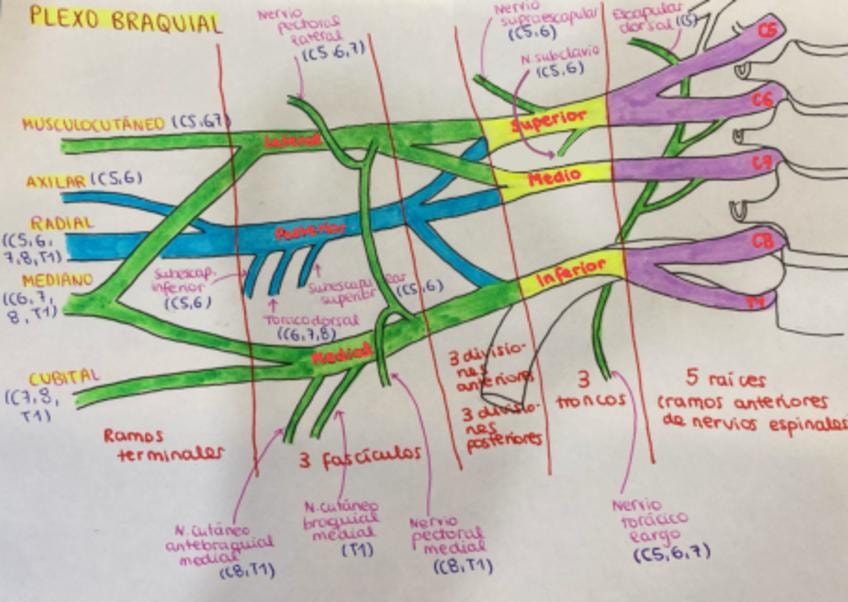 PLEXO BRAQUIAL
Nervio
pectoral
lateral
(C5,6,7)
Nervio
supraescapular
(C5,6)
N. subclavio
(C5,6)
Escapular
dorsal (C5)
C5
C6
C7
C8
T1
MUSCULOCUTÁNEO (C5,67)
AXILAR (C5,6)
RADIAL
(C5,6,
7,8,T1)
MEDIANO
(C6,7,
8,T1)
CUBITAL
(C7,8,
T1)
Lateral
Posterior
Medial
Superior
Medio
Inferior
Subescap.
inferior
(C5,6)
Toracodorsal
(C6,7,8)
Subescapular
superior (C5,6)
Ramos
terminales
3 fascículos
3 divisio-
nes
anteriores
3 divisio-
nes
posteriores
3
troncos
5 raíces
(ramos anteriores
de nervios espinales
N. cutáneo
antebraquial
medial
(C8,T1)
N. cutáneo
braquial
medial
(T1)
Nervio
pectoral
medial
(C8,T1)
Nervio
torácico
largo
(C5,6,7)